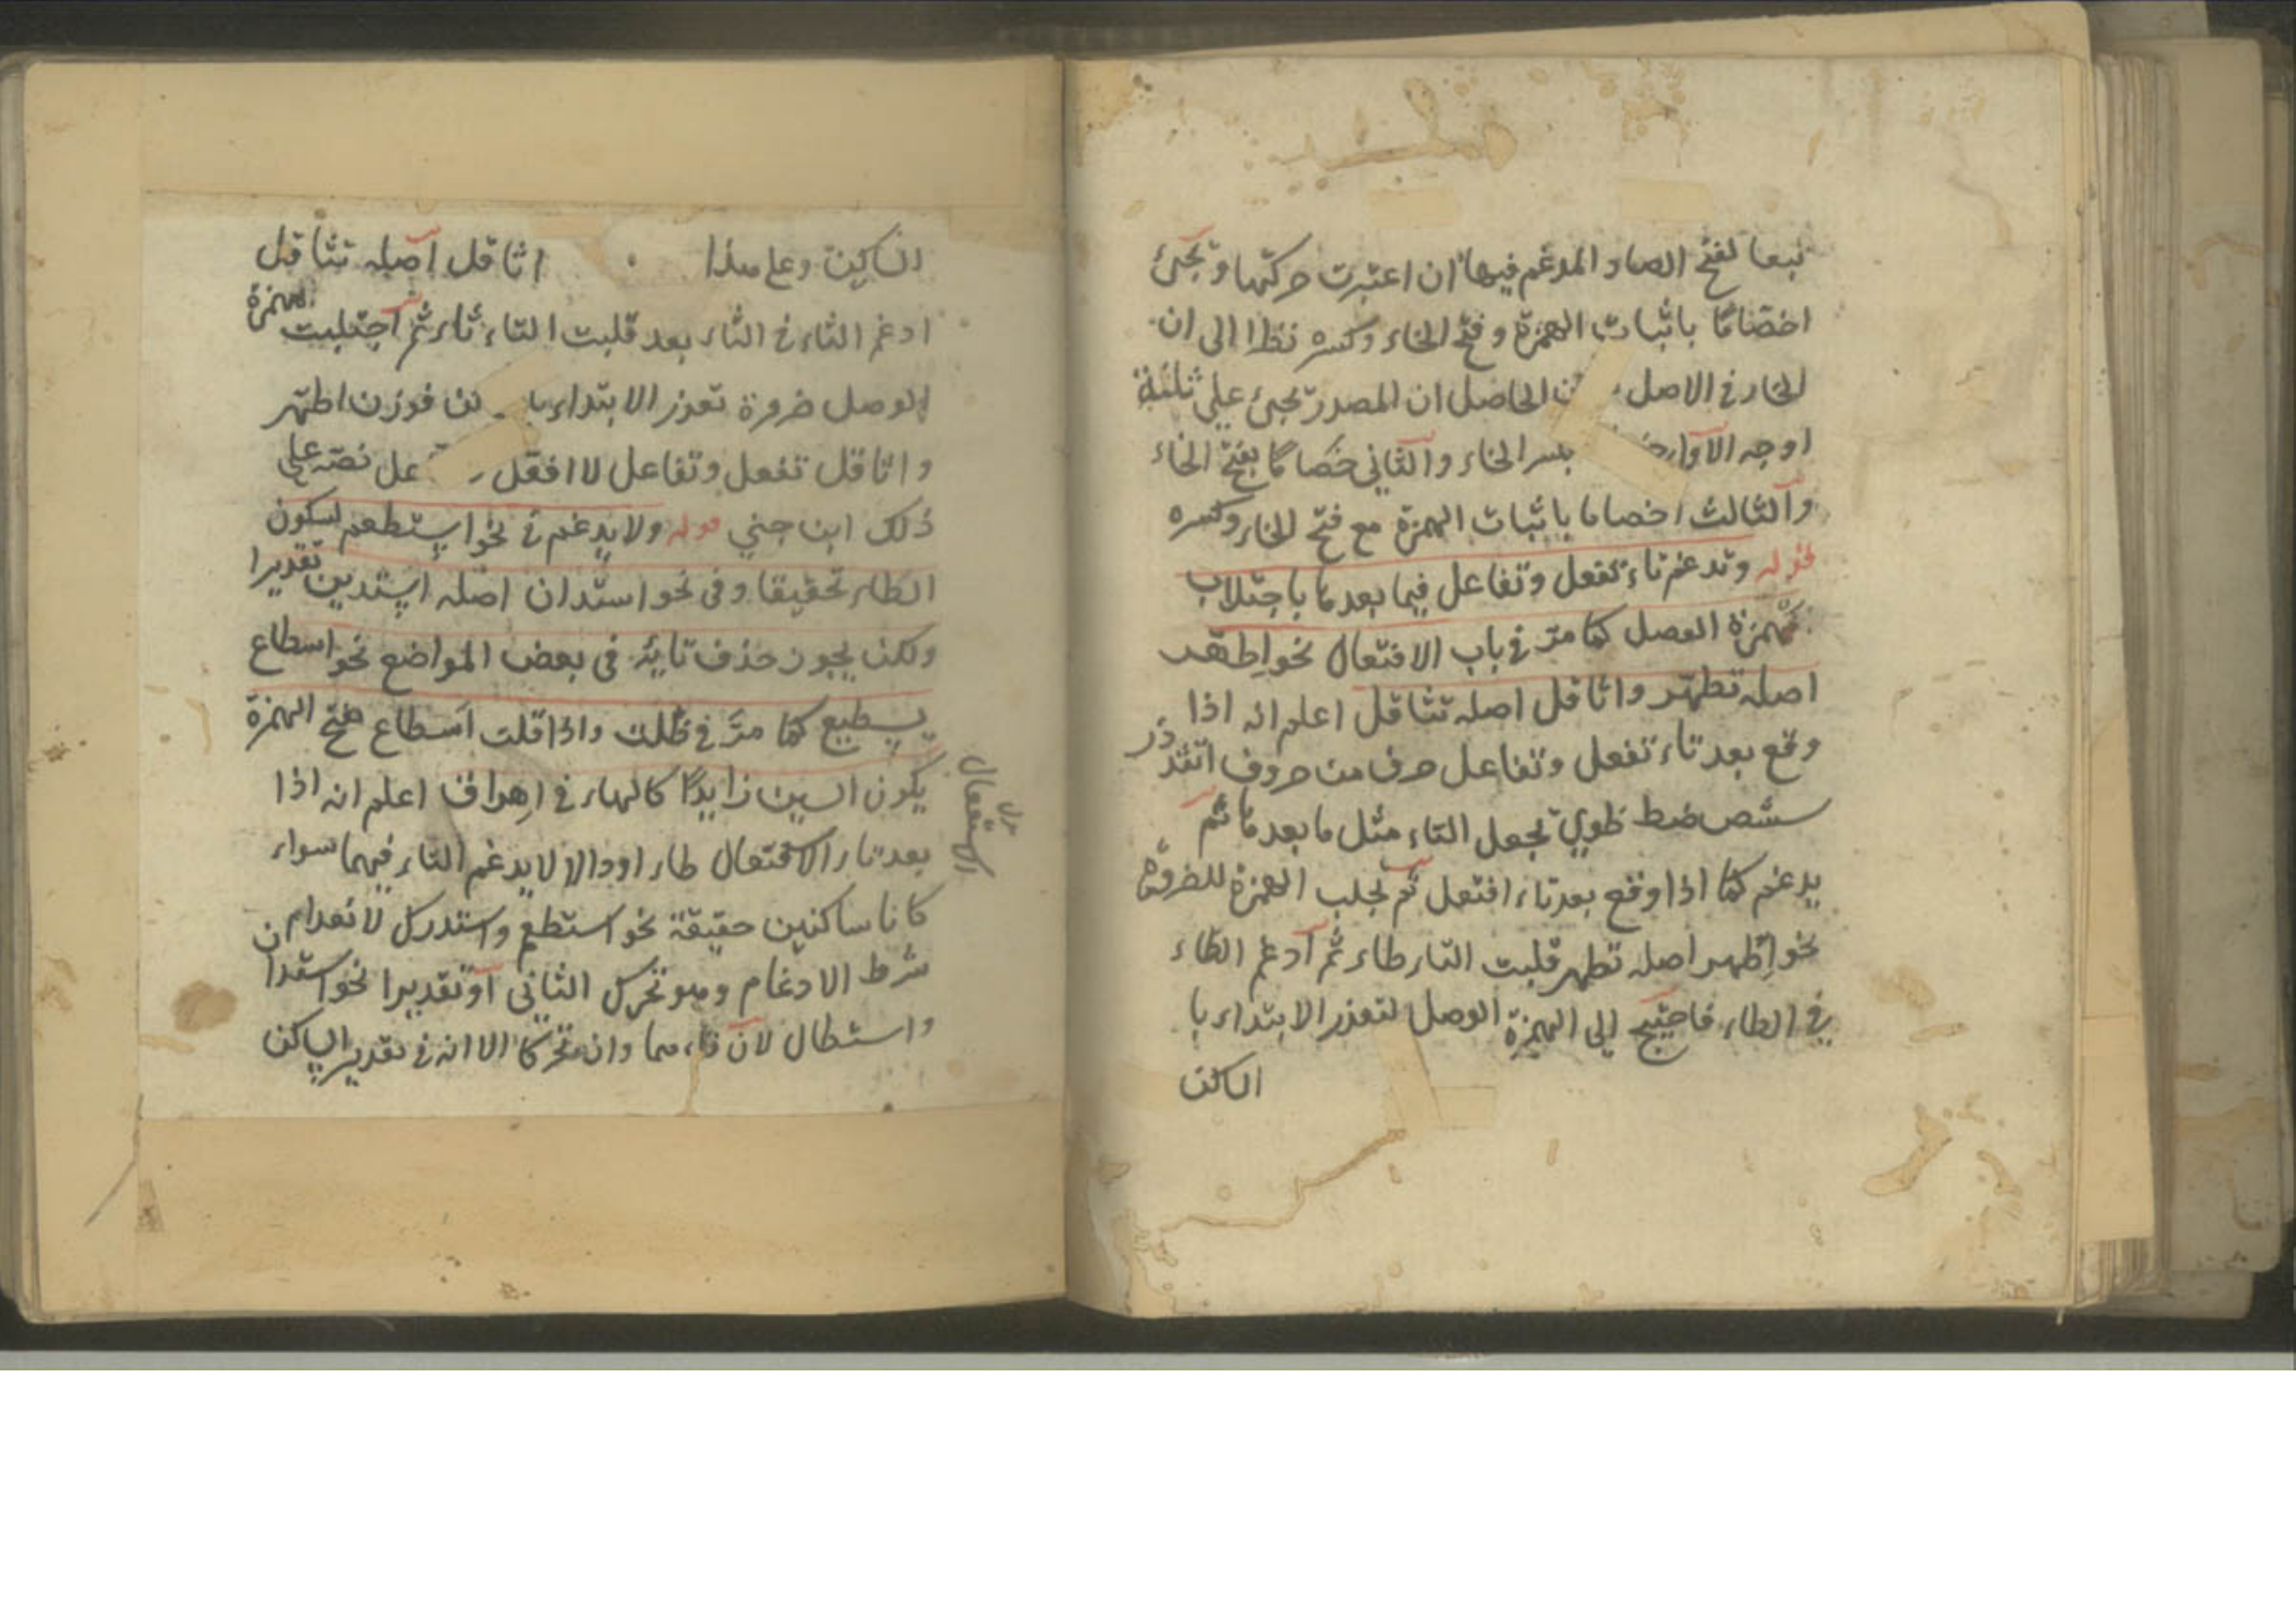 تبعا لفتح الصاد المدغم فيها ان اعتبرت حركتها وتجئ
اخصاما باثبات الهمزة وفتح الخاء وكسره نظرا الى ان
الخاء في الاصل الحاصل ان المصدر تجئ على ثلثة
اوجه الاول بكسر الخاء والثاني خصاما بفتح الخاء
والثالث اخصاما باثبات الهمزة مع فتح الخاء وكسره
قوله وتدغم تاء تفعل وتفاعل فيما بعدها باجتلاب
همزة الوصل كما مر في باب الافتعال نحو اطهر
اصله تطهر واثاقل اصله تثاقل اعلم انه اذا
وقع بعد تاء تفعل وتفاعل حرف من حروف اتثد ذز
سشص ضط ظوي تجعل التاء مثل ما بعدها ثم
يدغم كما اذا وقع بعد تاء افتعل ثم تجلب الهمزة للضرورة
نحو اطهر اصله تطهر قلبت التاء طاء ثم ادغم الطاء
في الطاء فاحتيج الى الهمزة الوصل لتعذر الابتداء با
الساكن
الساكن وعلى هذا اثاقل اصله تثاقل
ادغم الثاء في الثاء بعد قلبت التاء ثاء ثم اجتلبت الهمزة
الوصل ضرورة تعذر الابتداء فوزن اطهر
واثاقل تفعل وتفاعل لا افعل نصه على
ذلك ابن جني قوله ولا يدغم في نحو استطعم لسكون
الطاء تحقيقا وفي نحو استدان اصله استدين تقديرا
ولكن يجوز حذف تائه في بعض المواضع نحو اسطاع
يسطيع كما مر في ظلت واذا قلت اسطاع بفتح الهمزة
يكون السين زايدا كالهاء في اهراق اعلم انه اذا
بعد تاء الافتعال طاء او دالا لا يدغم التاء فيهما سواء
الاستفعال
كانا ساكنين حقيقة نحو استطعم واستدرك لانعدام
شرط الادغام وهو تحرك الثاني او تقديرا نحو استدان
واستطال لان فاءهما وان متحركا الا انه في تقدير الساكن